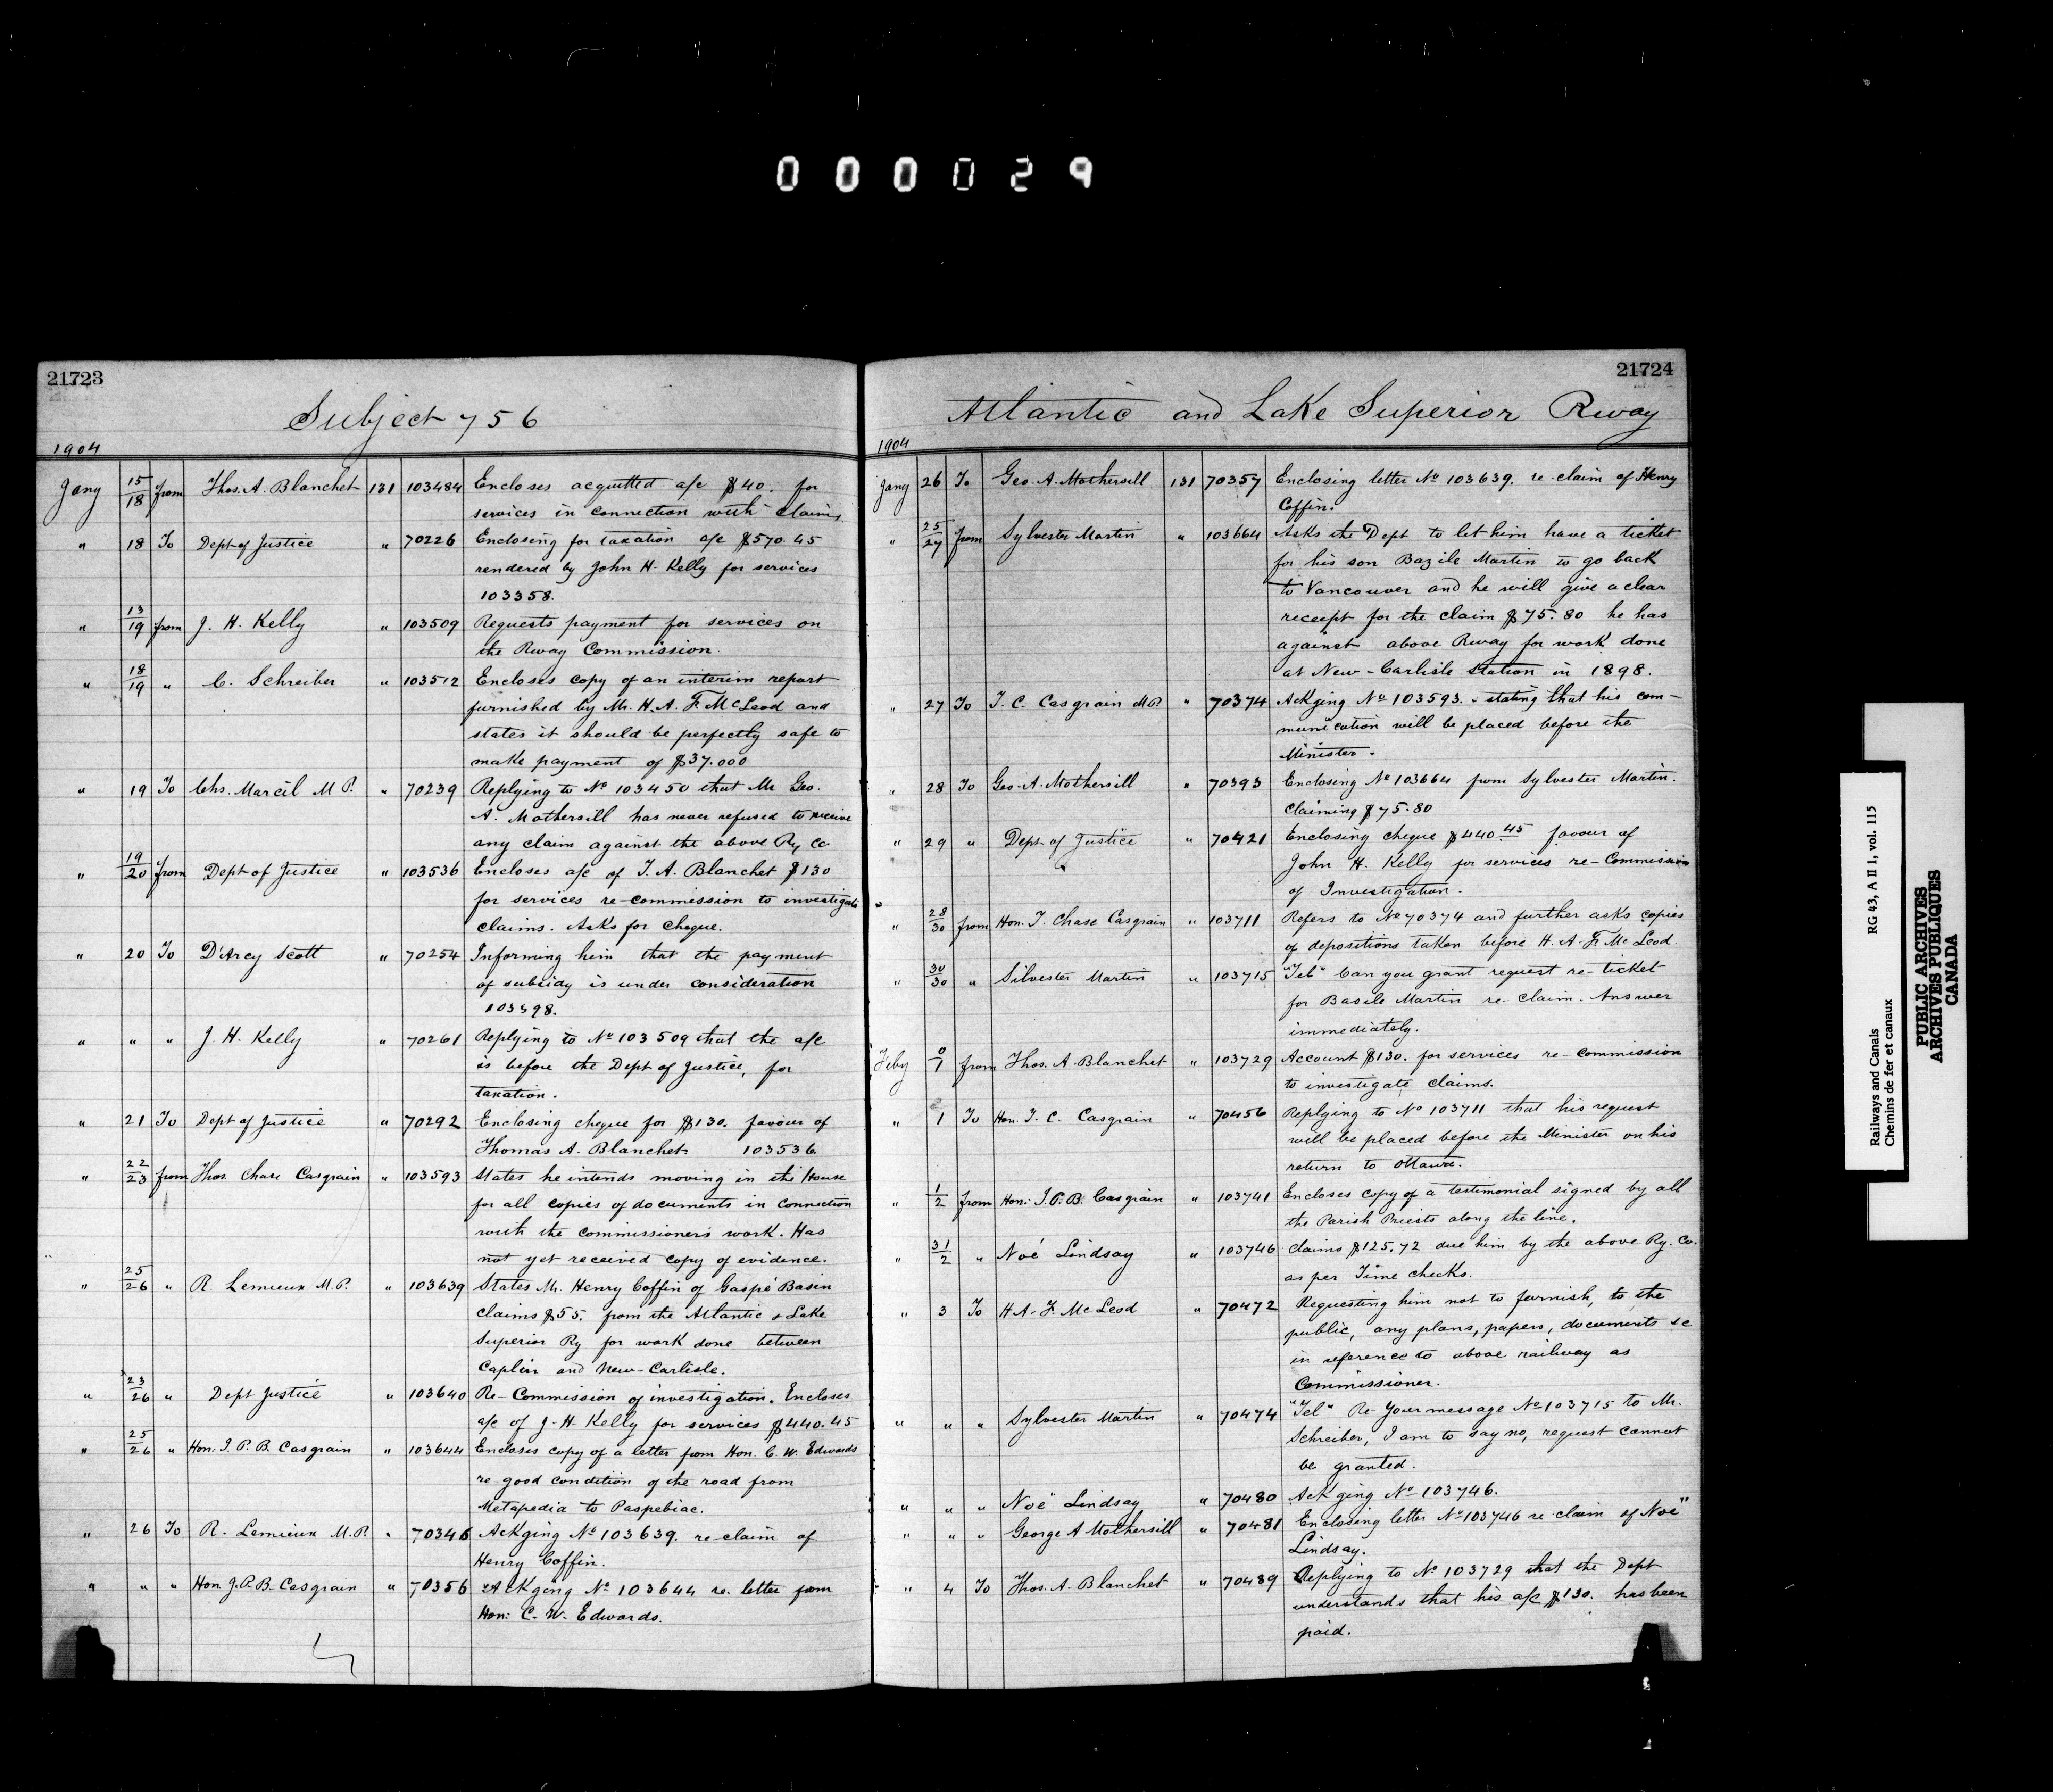 000029
21723
Subject 756
1904
Jany 15/18 from Thos. A. Blanchet 131 103484 Encloses acquitted a/c $40. for
services in connection with claims
" 18 To Dept of Justice " 70226 Enclosing for taxation a/c $570.45
rendered by John H. Kelly for services
103358.
" 13/19 from J. H. Kelly " 103509 Requests payment for services on
the Rway Commission.
" 18/19 " C. Schreiber " 103512 Encloses copy of an interim report
furnished by Mr. H. A. F. McLeod and
states it should be perfectly safe to
make payment of $37.000
" 19 To Chs. Marcil M P. " 70239 Replying to No 103450 that Mr Geo.
A. Mothersill has never refused to receive
any claim against the above Ry Co
" 19/20 from Dept of Justice " 103536 Encloses a/c of T. A. Blanchet $130
for services re-commission to investigate
claims. Asks for cheque.
" 20 To D'Arcy Scott " 70254 Informing him that the payment
of subsidy is under consideration
103398.
" " " J. H. Kelly " 70261 Replying to No 103509 that the a/c
is before the Dept of Justice, for
taxation.
" 21 To Dept of Justice " 70292 Enclosing cheque for $130. favour of
Thomas A. Blanchet 103536
" 22/23 from Thos. Chase Casgrain " 103593 States he intends moving in the House
for all copies of documents in connection
with the commissioners work. Has
not yet received copy of evidence.
" 25/26 " R. Lemieux M.P. " 103639 States Mr. Henry Coffin of Gaspé Basin
claims $55. from the Atlantic & Lake
Superior Ry for work done between
Caplin and New-Carlisle.
" 23/26 " Dept Justice " 103640 Re-Commission of investigation. Encloses
a/c of J. H. Kelly for services $440.45
" 25/26 " Hon. J. P. B. Casgrain " 103644 Encloses copy of a letter from Hon. C. W. Edwards
re good condition of the road from
Metapedia to Paspebiac.
" 26 To R. Lemieux M.P. " 70346 Ackging No 103639. re-claim of
Henry Coffin.
" " " Hon. J. P. B. Casgrain " 70356 Ackging No 103644 re. letter from
Hon: C. W. Edwards.
21724
Atlantic and Lake Superior Rway
1904
Jany 26 To Geo. A. Mothersill 131 70357 Enclosing letter No 103639. re claim of Henry
Coffin.
" 25/27 from Sylvester Martin " 103664 Asks the Dept to let him have a ticket
for his son Bazile Martin to go back
to Vancouver and he will give a clear
receipt for the claim $75.80 he has
against above Rway for work done
at New-Carlisle Station in 1898.
" 27 To T. C. Casgrain M.P. " 70374 Ackging No 103593. stating that his com-
munication will be placed before the
Minister.
" 28 To Geo. A. Mothersill " 70393 Enclosing No 103664 from Sylvester Martin.
Claiming $75.80
" 29 " Dept of Justice " 70421 Enclosing cheque $440.45 favour of
John H. Kelly for services re-Commission
of Investigation.
" 28/30 from Hon. T. Chase Casgrain " 103711 Refers to No 70374 and further asks copies
of depositions taken before H. A. F. McLeod.
" 30/30 " Silvester Martin " 103715 "Tel" Can you grant request re-ticket
for Basile Martin re-claim. Answer
immediately.
Feby 0/1 from Thos. A. Blanchet " 103729 Account $130. for services re-commission
to investigate claims.
" 1 To Hon. T. C. Casgrain " 70456 Replying to No 103711 that his request
will be placed before the Minister on his
return to Ottawa.
" 1/2 from Hon: J. P. B. Casgrain " 103741 Encloses copy of a testimonial signed by all
the Parish Priests along the line.
" 31/2 " Noé Lindsay " 103746 Claims $125.72 due him by the above Ry. Co.
as per Time checks.
" 3 To H. A. F. McLeod " 70472 Requesting him not to furnish, to the
public, any plans, papers, documents &c
in reference to above railway as
Commissioner.
" " " Sylvester Martin " 70474 "Tel" Re-your message No 103715 to Mr.
Schreiber, I am to say no, request cannot
be granted.
" " " Noë Lindsay " 70480 Ackging No 103746.
" " " George A Mothersill " 70481 Enclosing letter No 103746 re claim of Noë
Lindsay.
" 4 To Thos. A. Blanchet " 70489 Replying to No 103729 that the Dept
understands that his a/c $130. has been
paid.
Railways and Canals RG 43, A II 1, vol. 115
Chemins de fer et canaux
PUBLIC ARCHIVES
ARCHIVES PUBLIQUES
CANADA